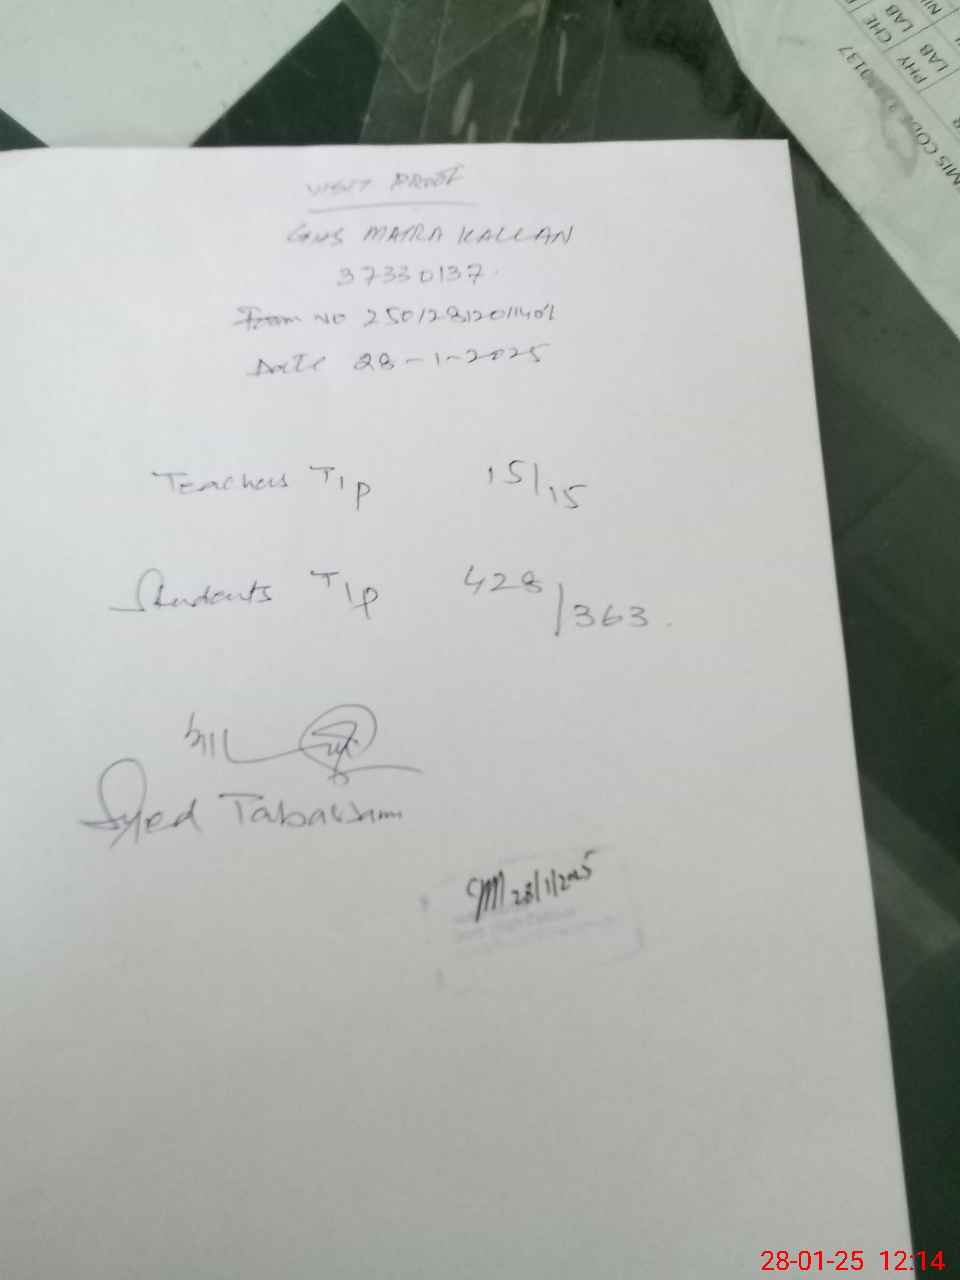 VISIT PROOF
GHS MATRA KALLAN
37330137
Form NO
Date 28-1-2025
Teachers T/P 15/15
Students T/P 428/363.
Syed Tabassum
28/1/2025
PHY CHE
LAB LAB
EMIS CODE
28-01-25 12:14